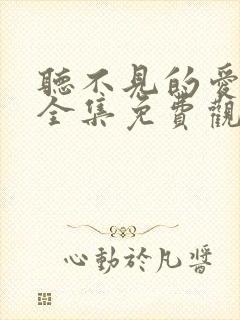 聽不見的愛
全集免費觀
心動於凡醬